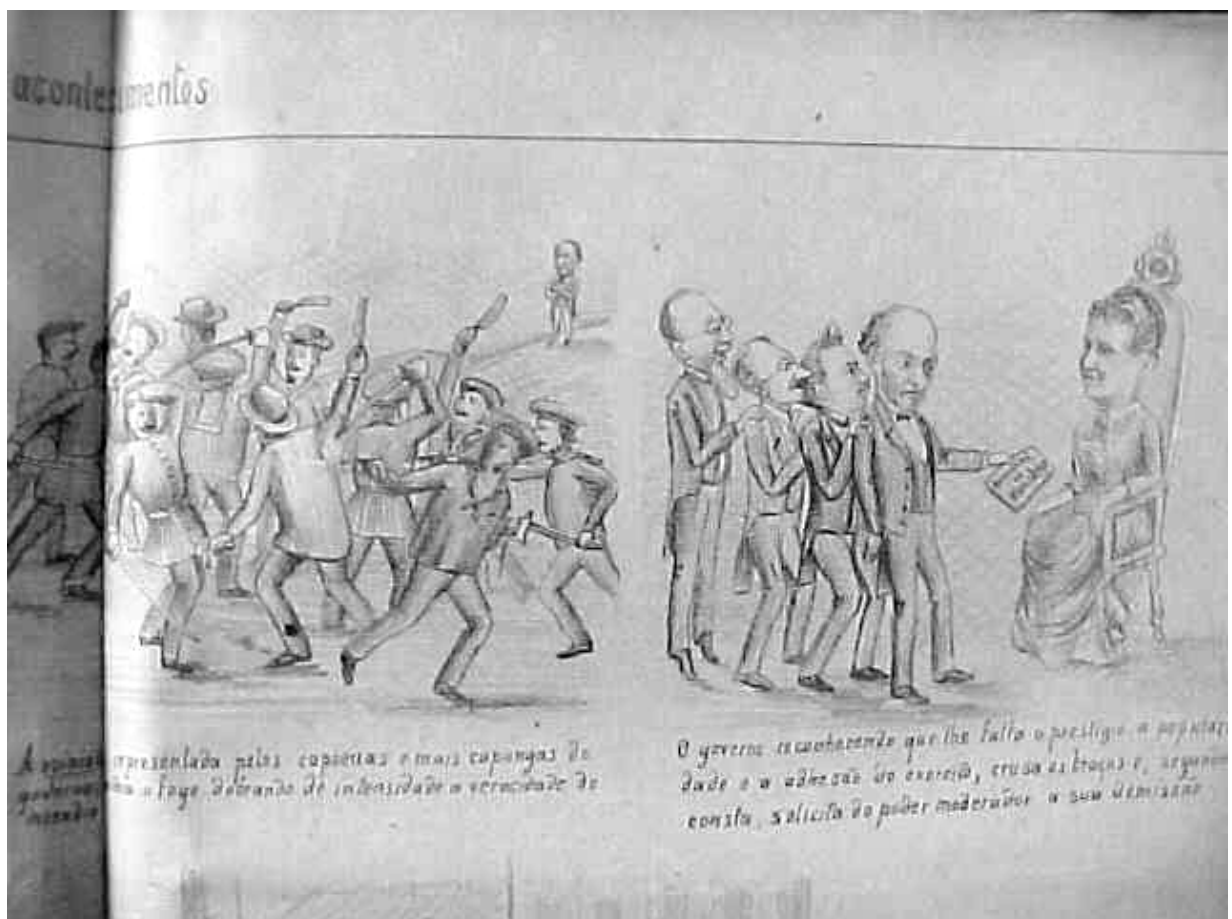 acontecimentos
A opinião representada pelos capoeiras e mais capangas do
governo a fogo, dobrando de intensidade a veracidade do
incendio
O governo reconhecendo que lhe falta o prestigio a populari
dade e a adhesão do exercito, crusa os braços e, segundo
consta, solicita do poder moderador a sua demissão